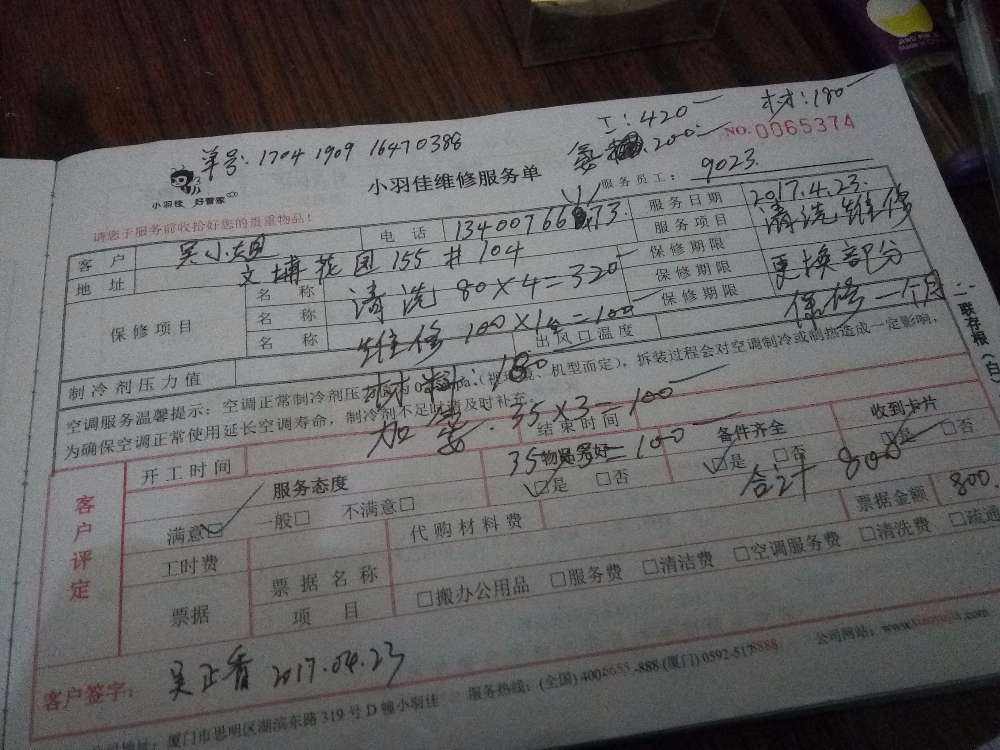 工:420 材:180
单号:1704 1909 16470388
200
NO.0065374
小羽佳 好管家
小羽佳维修服务单
服务员工: 9023
请您于服务前收拾好您的贵重物品!
客户 吴小姐 电话 服务日期 2017.4.23.
地址 文博花园155#104 服务项目 清洗维修
保修项目 名称 清洗 80×4=320 保修期限 更换部分
名称 维修 100×1台=100 保修期限 保修一个月
名称 保修期限
制冷剂压力值 材料:180 出风口温度
空调服务温馨提示:空调正常制冷剂压力 (视 、机型而定),拆装过程会对空调制冷或制热造成一定影响,
为确保空调正常使用延长空调寿命,制冷剂不足时请及时补充。
加 35×3=100
开工时间 结束时间
35 =100
客户评定 服务态度 物品完好 备件齐全 收到卡片
满意☑ 一般□ 不满意□ ☑是 □否 ☑是 □否 ☑是 □否
合计 800
工时费 代购材料费 票据金额 800.
票据 票据名称
项目 □搬办公用品 □服务费 □清洁费 □空调服务费 □清洗费 □疏通
客户签字: 吴正香 2017.04.23
厦门市思明区湖滨东路319号D幢小羽佳 服务热线:(全国)4008655-888 (厦门)0592-5178888 公司网站:www.
二、联存根(白)